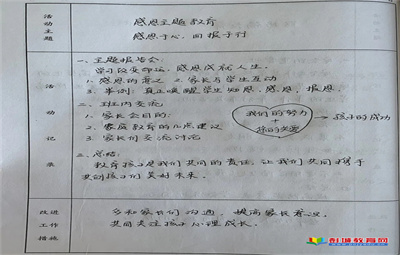 活动主题
感恩主题教育
感恩于心,回报于行
活动记录
一、主题报告会:
学习改变命运,感恩成就人生
1. 感恩的意义 2. 家长与学生互动
3. 案例:真正唤醒学生知恩,感恩,报恩。
二、班内交流:
1. 家长会目的:
2. 家庭教育的几点建议
3. 家长们交流讨论
我们的努力
+
您的支持
→ 孩子的成功
三、总结:
教育孩子是我们共同的责任,让我们共同携手
共创孩子们美好未来。
改进工作措施
多和家长们沟通,提高家长意识
共同关注孩子心理成长。
彭城教育网